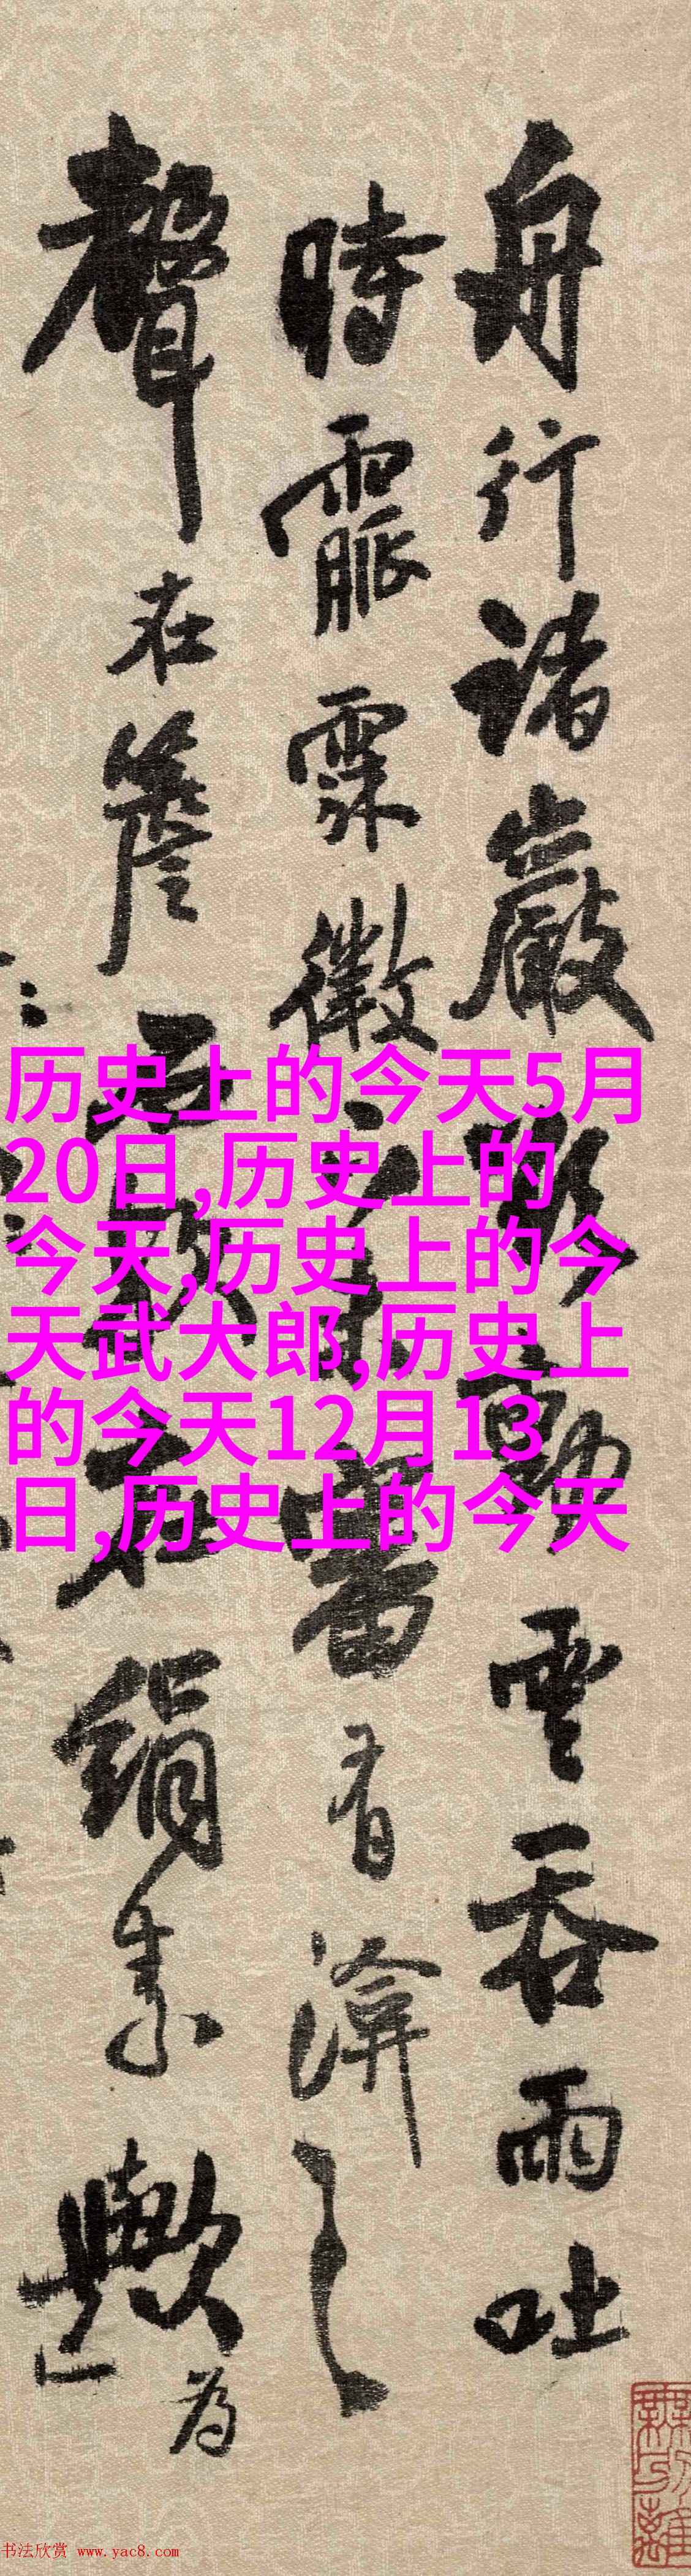 舟行諸巖
動雲吞雨吐
時霢霂徵
留有渰之
聲在簷
絹素歟為
历史上的今天5月
20日,历史上的
今天,历史上的今
天武大郎,历史上
的今天12月13
日,历史上的今天
书法欣赏 www.yac8.com